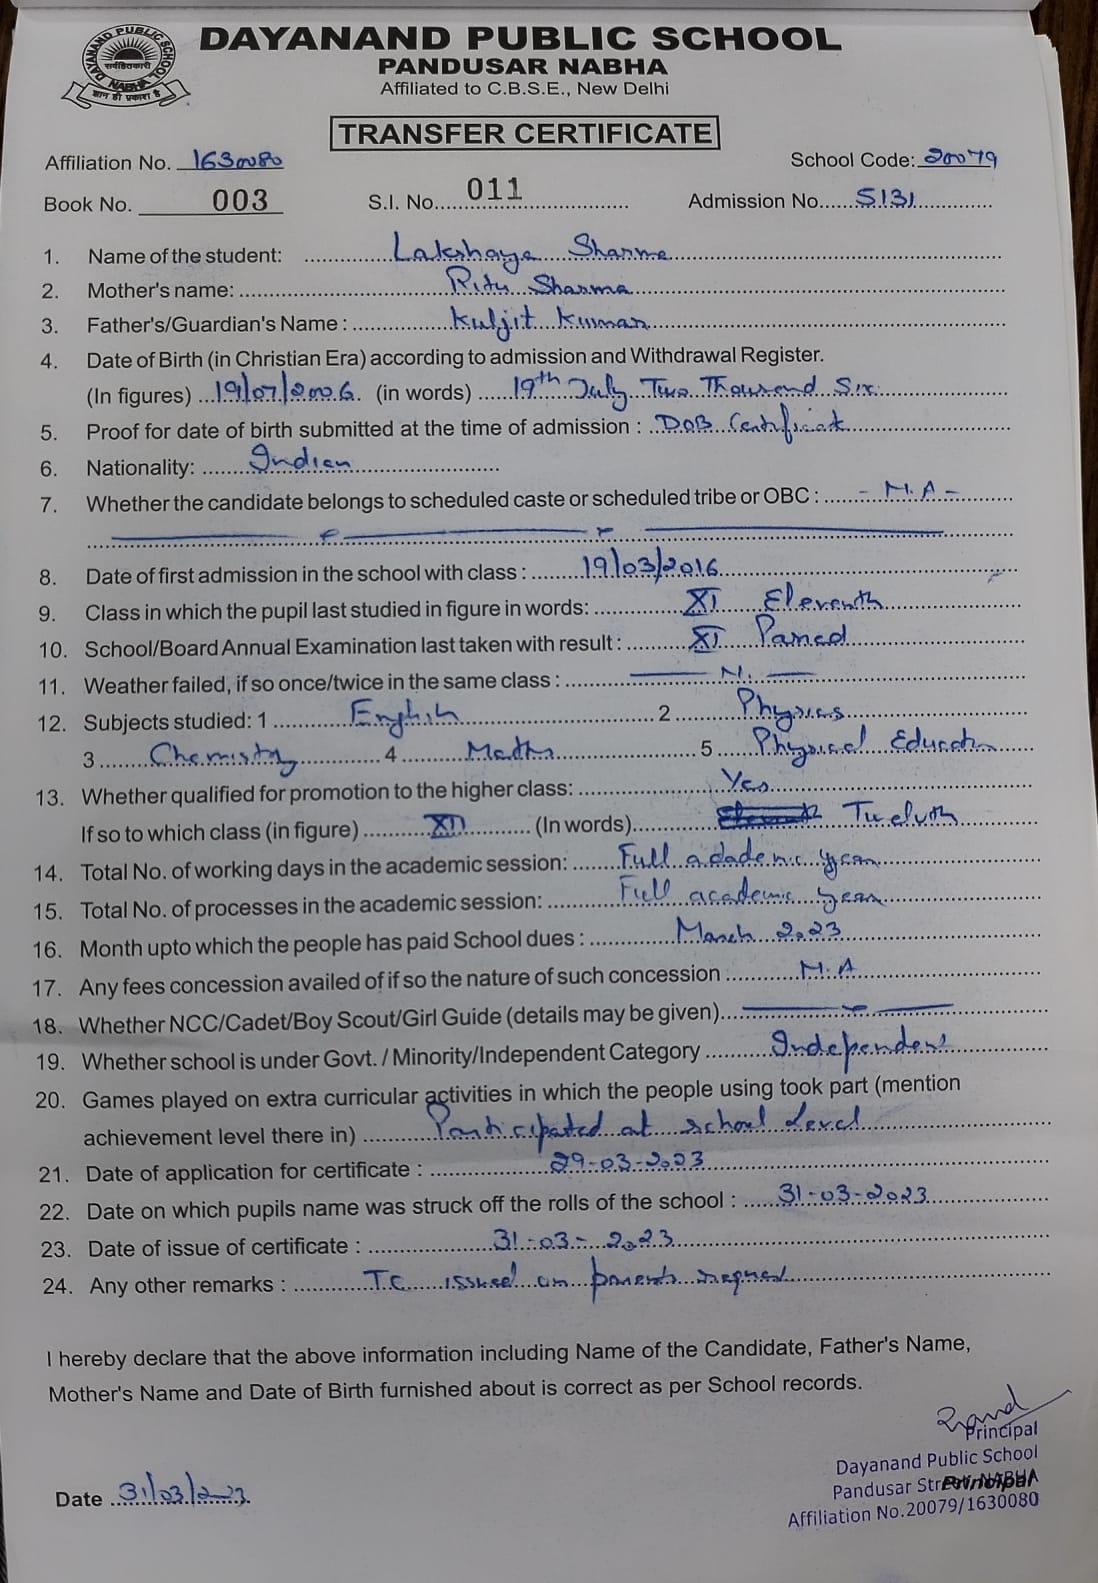 DAYANAND PUBLIC SCHOOL
NABHA
सर्वहितकारी
ज्ञान ही प्रकाश है
DAYANAND PUBLIC SCHOOL
PANDUSAR NABHA
Affiliated to C.B.S.E., New Delhi
TRANSFER CERTIFICATE
Affiliation No. 1630080 School Code: 20079
Book No. 003 S.I. No. 011 Admission No. 5131
1. Name of the student: Lakshaya Sharma
2. Mother's name: Ritu Sharma
3. Father's/Guardian's Name : Kuljit Kumar
4. Date of Birth (in Christian Era) according to admission and Withdrawal Register.
(In figures) 19/07/2006. (in words) 19th July Two Thousand Six.
5. Proof for date of birth submitted at the time of admission : DOB Certificate
6. Nationality: Indian
7. Whether the candidate belongs to scheduled caste or scheduled tribe or OBC : - N.A -
8. Date of first admission in the school with class : 19/03/2016
9. Class in which the pupil last studied in figure in words: XI Eleventh
10. School/Board Annual Examination last taken with result : XI Passed
11. Weather failed, if so once/twice in the same class : — N. —
12. Subjects studied: 1 English 2 Physics
3 Chemistry 4 Maths 5 Physical Education
13. Whether qualified for promotion to the higher class: Yes
If so to which class (in figure) XII (In words) Twelvth
14. Total No. of working days in the academic session: Full adademic year
15. Total No. of processes in the academic session: Full academic year
16. Month upto which the people has paid School dues : March 2023
17. Any fees concession availed of if so the nature of such concession : N.A
18. Whether NCC/Cadet/Boy Scout/Girl Guide (details may be given)
19. Whether school is under Govt. / Minority/Independent Category Independent
20. Games played on extra curricular activities in which the people using took part (mention
achievement level there in) Participated at school Level
21. Date of application for certificate : 29-03-2023
22. Date on which pupils name was struck off the rolls of the school : 31-03-2023
23. Date of issue of certificate : 31-03-2023
24. Any other remarks : T.C issued on parents request
I hereby declare that the above information including Name of the Candidate, Father's Name,
Mother's Name and Date of Birth furnished about is correct as per School records.
Principal
Dayanand Public School
Pandusar Street NABHA
Principal
Affiliation No.20079/1630080
Date 31/03/2023